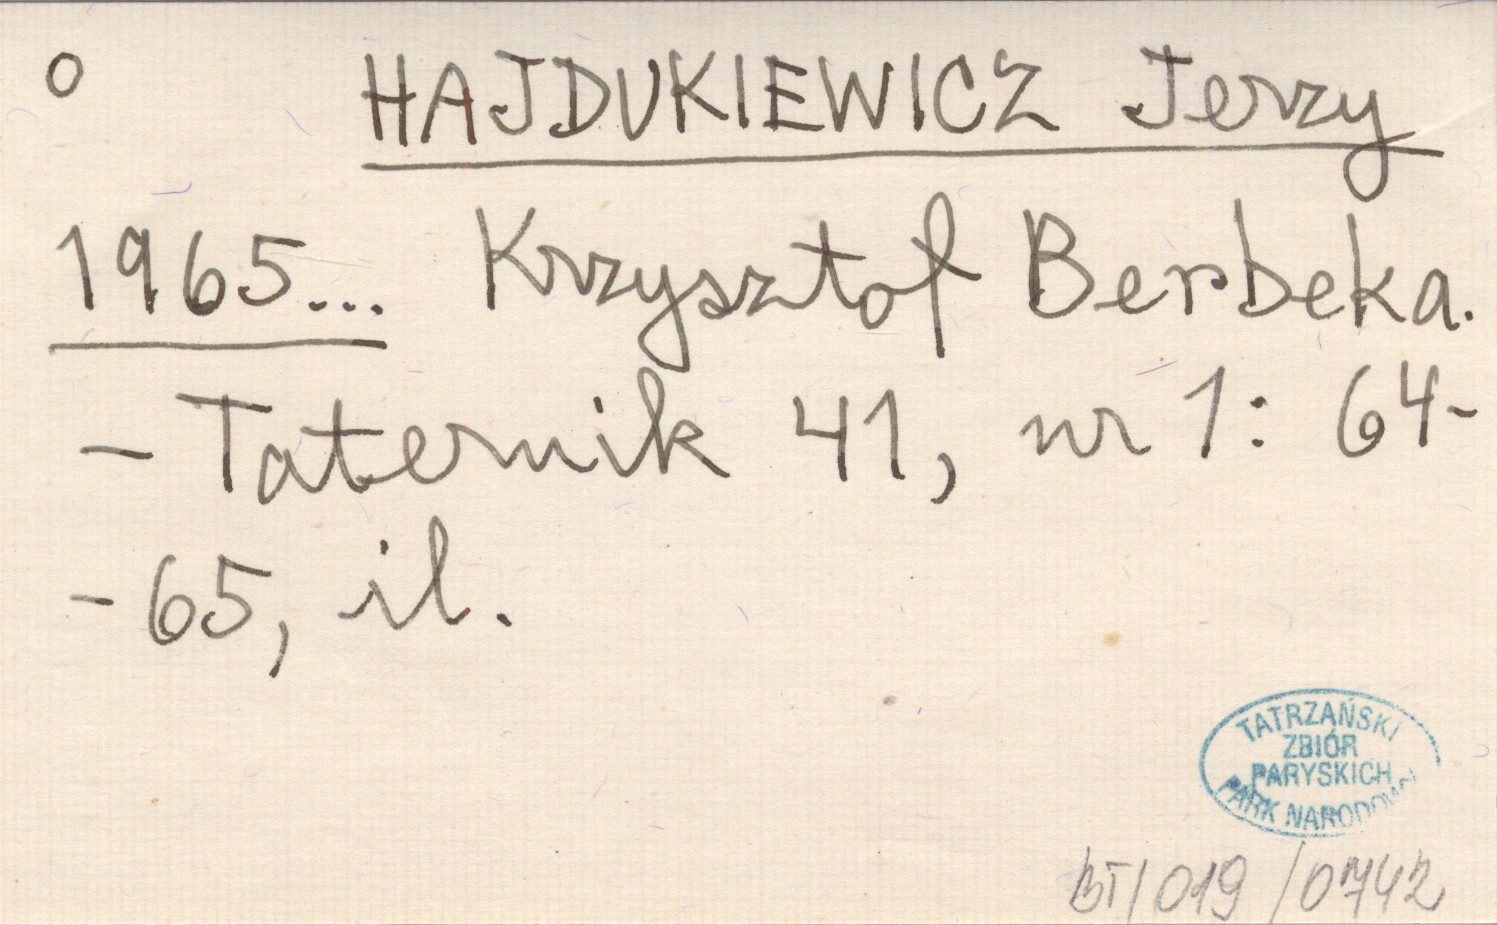 o HAJDUKIEWICZ Jerzy
1965... Krzysztof Berbeka.
- Taternik 41, nr 1: 64-
-65, il.
TATRZAŃSKI
ZBIÓR
PARYSKICH
PARK NARODOWY
BT/019/0742